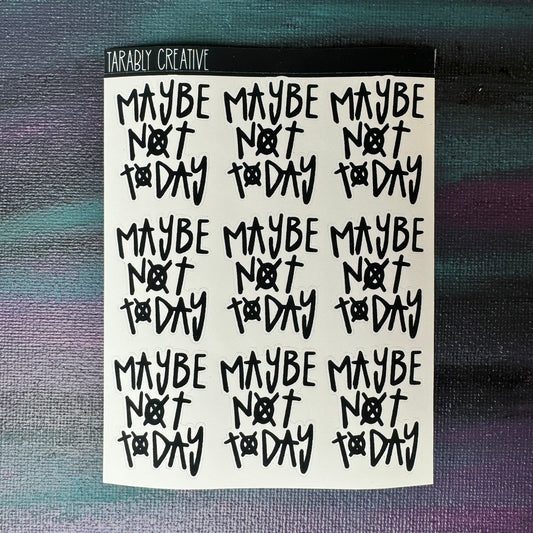 TARABLY CREATIVE
MAYBE MAYBE MAYBE
NOT NOT NOT
TODAY TODAY TODAY
MAYBE MAYBE MAYBE
NOT NOT NOT
TODAY TODAY TODAY
MAYBE MAYBE MAYBE
NOT NOT NOT
TODAY TODAY TODAY